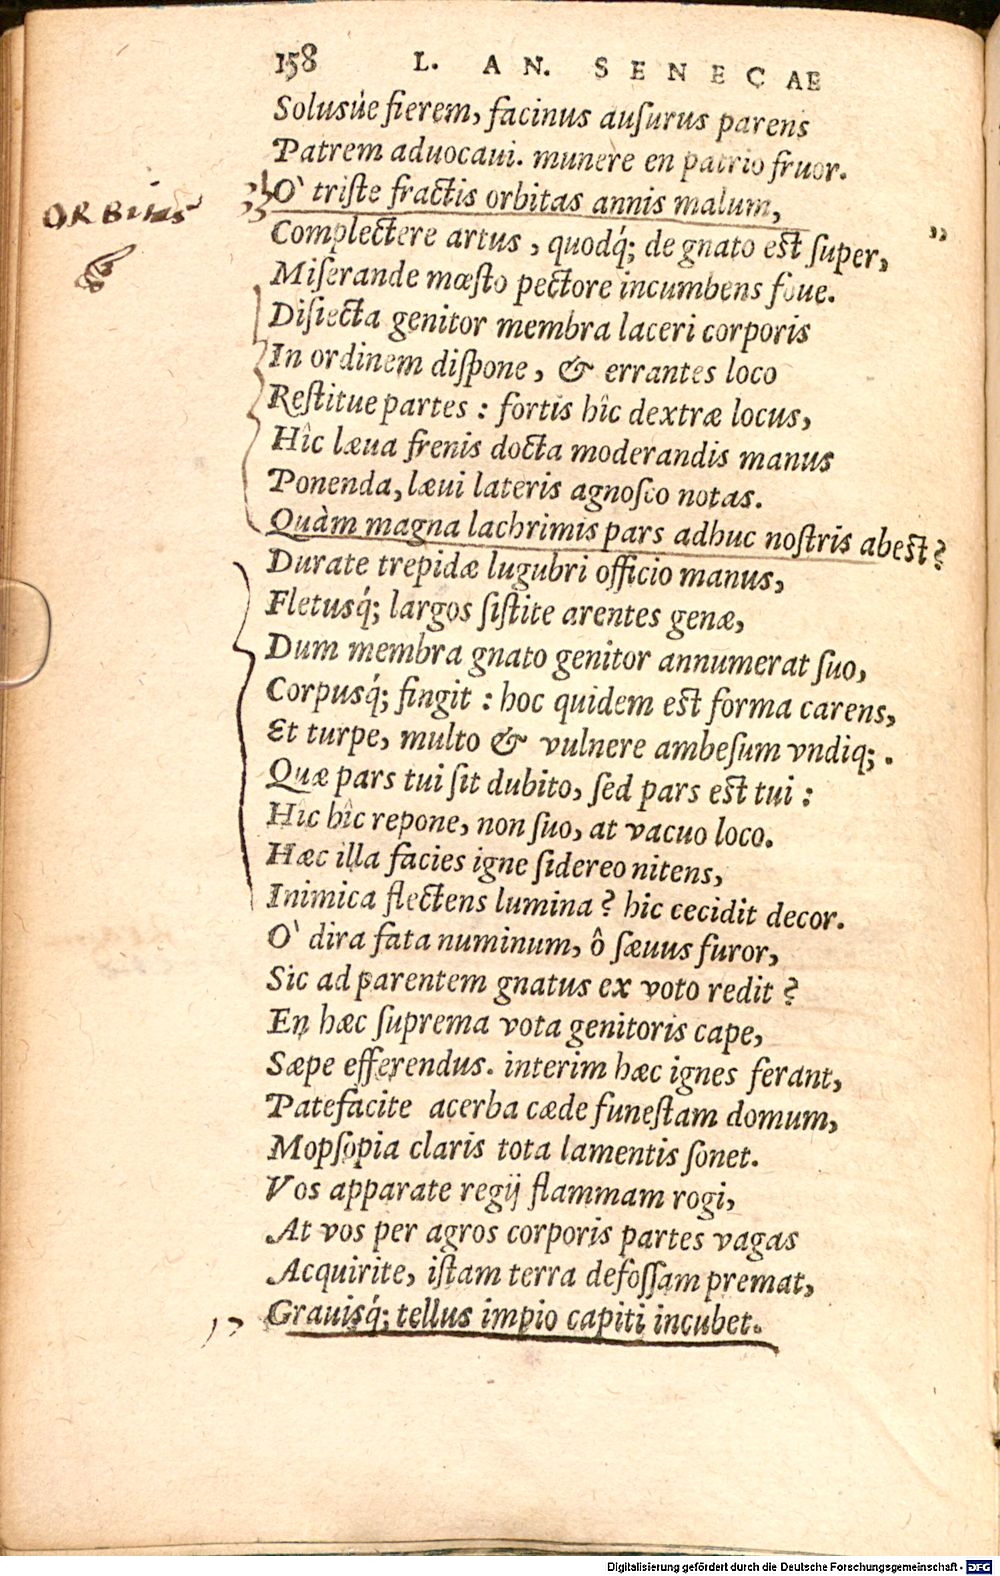 158 L. AN. SENECAE
Solusúe fierem, facinus auſurus parens
Patrem aduocaui. munere en patrio fruor.
ORBitas
O` triſte fractis orbitas annis malum,
Complectere artus, quodq́; de gnato eſt ſuper, ”
Miſerande mœſto pectore incumbens foue.
Diſiecta genitor membra laceri corporis
In ordinem diſpone, & errantes loco
Reſtitue partes : fortis hîc dextræ locus,
Hîc læua frenis docta moderandis manus
Ponenda, læui lateris agnoſco notas.
Quàm magna lachrimis pars adhuc noſtris abeſt?
Durate trepidæ lugubri officio manus,
Fletusq́; largos ſiſtite arentes genæ,
Dum membra gnato genitor annumerat ſuo,
Corpusq́; fingit : hoc quidem eſt forma carens,
Et turpe, multo & vulnere ambeſum vndiq; .
Quæ pars tui ſit dubito, ſed pars eſt tui :
Hîc hîc repone, non ſuo, at vacuo loco.
Hæc illa facies igne ſidereo nitens,
Inimica flectens lumina? hic cecidit decor.
O` dira fata numinum, ô ſæuus furor,
Sic ad parentem gnatus ex voto redit?
En hæc ſuprema vota genitoris cape,
Sæpe efferendus. interim hæc ignes ferant,
Patefacite acerba cæde funeſtam domum,
Mopſopia claris tota lamentis ſonet.
Vos apparate regij flammam rogi,
At vos per agros corporis partes vagas
Acquirite, iſtam terra defoſſam premat,
Grauisq́; tellus impio capiti incubet.
Digitalisierung gefördert durch die Deutsche Forschungsgemeinschaft - DFG